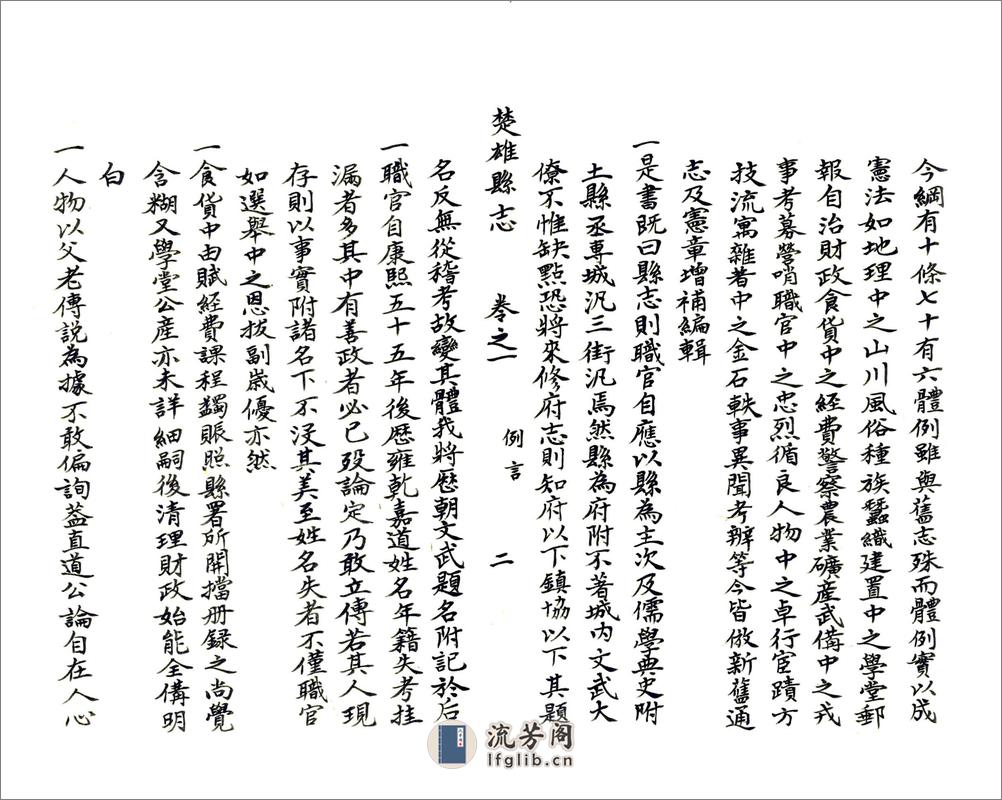 今綱有十條七十有六體例雖與舊志殊而體例實以成
憲法如地理中之山川風俗種族蠶織建置中之學堂郵
報自治財政食貨中之經費警察農業礦產武備中之戎
事考募營哨職官中之忠烈循良人物中之卓行宦蹟方
技流寓雜著中之金石軼事異聞考辨等今皆倣新舊通
志及憲章增補編輯
一是書既曰縣志則職官自應以縣為主次及儒學典史附
土縣丞專城汛三街汛焉然縣為府附不著城內文武大
僚不惟缺點恐將來修府志則知府以下鎮協以下其題
楚雄縣志 卷之一 例言 二
名反無從稽考故變其體我將歷朝文武題名附記於后
一職官自康熙五十五年後歷雍乾嘉道姓名年籍失考挂
漏者多其中有善政者必已歿論定乃敢立傳若其人現
存則以事實附諸名下不沒其美至姓名失者不僅職官
如選舉中之恩拔副歲優亦然
一食貨中由賦經費課程蠲賑照縣署所開擋册録之尚覺
含糊又學堂公産亦未詳細嗣後清理財政始能全備明
白
一人物以父老傳説為據不敢偏詢葢直道公論自在人心
流芳阁
lfglib.cn